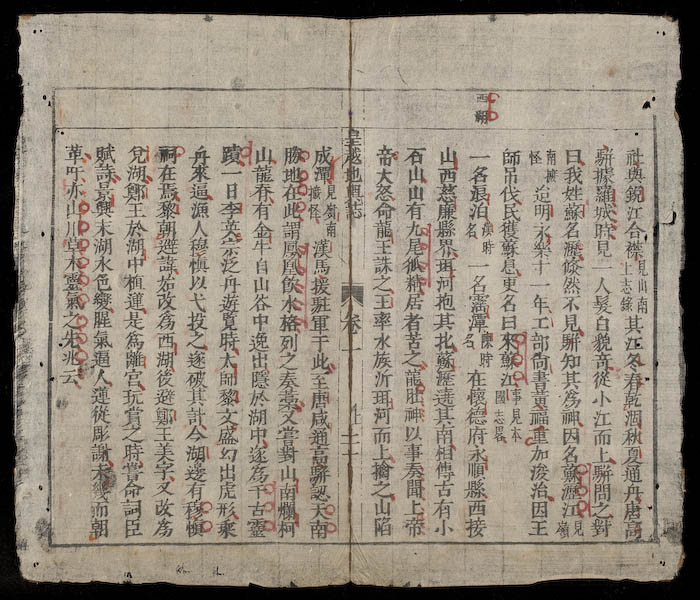 西湖
社與銳江合襟見山南上志錄其江冬春乾涸秋夏通舟唐高
駢據羅城時見一人髮白貌奇從小江而上駢問之對
曰我姓蘇名瀝倐然不見駢知其為神因名蘇瀝江見嶺
南摭怪迨明永樂十一年工部尙書黃福重加浚治因王
師吊伐民獲蘇息更名曰來蘇江事見本國志畧
一名浪泊漢時名一名霪潭陳時名在懷德府永順縣西接
山西慈廉縣界珥河抱其北蘇瀝遶其南相傳古有小
石山山有九尾狐精居者苦之龍肚神以事奏聞上帝
帝大怒命龍王誅之王率水族沂珥河而上擒之山陷
皇越地輿誌 卷一
成潭見嶺南摭怪漢馬援駐軍于此至唐咸通高駢認天南
勝地在此謂鳳凰飲水格列之奏藁又嘗對山南爛柯
山龍脊有金牛自山谷中逸出隱於湖中遂為千古靈
蹟一日李英宗泛舟遊覽時太師黎文盛幻出虎形乘
舟來逼漁人穆慎以弋投之遂破其計今湖邊有穆慎
祠在焉黎朝避諱始改為西湖後避鄭王美字又改為
兌湖鄭王於湖中植蓮是為離宮玩賞之時嘗命詞臣
賦詩景興末湖水色變腥氣逼人蓮從彫謝未幾而朝
革吁亦山川草木靈氣之先兆云